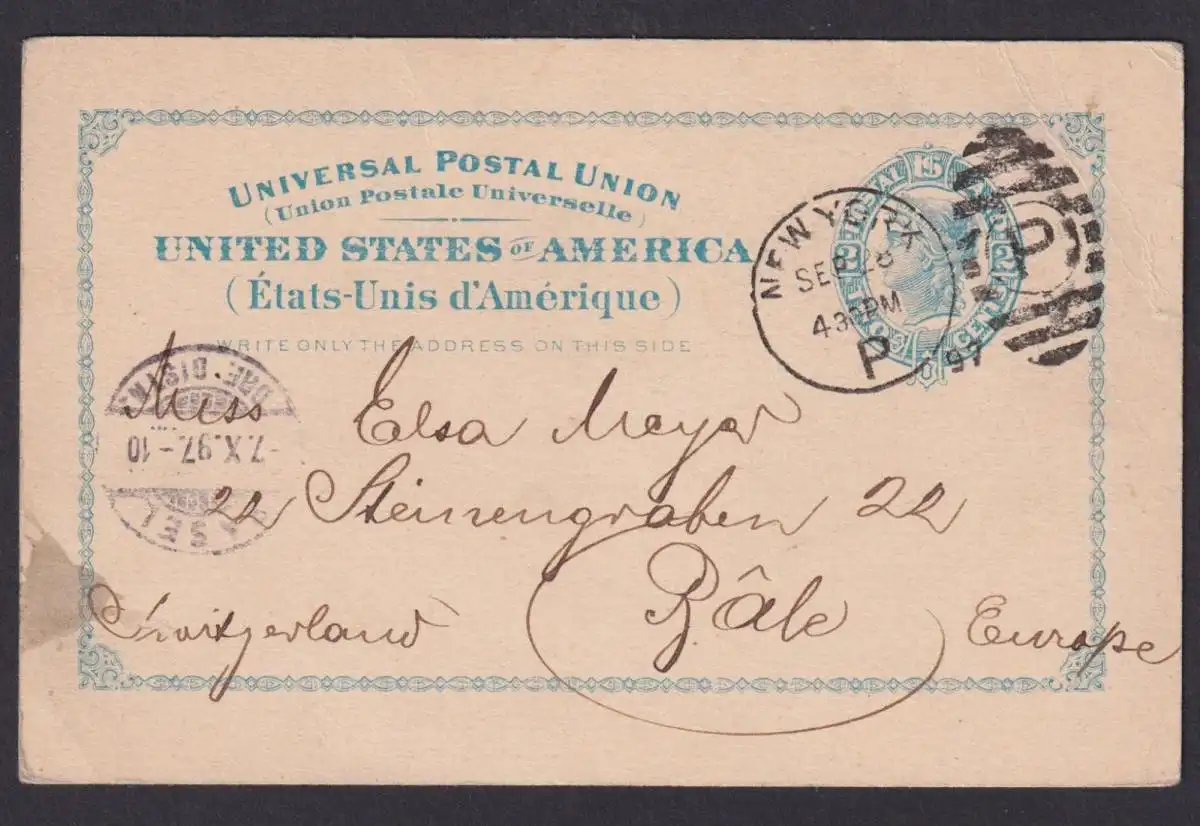 UNIVERSAL POSTAL UNION
(Union Postale Universelle)
UNITED STATES OF AMERICA
(États-Unis d'Amérique)
WRITE ONLY THE ADDRESS ON THIS SIDE
NEW YORK
SEP 28
430PM
P
97
Miss Elsa Meyer
22 Steinengraben 22
Bâle
Switzerland Europe
BASEL
-7.X.97.-10